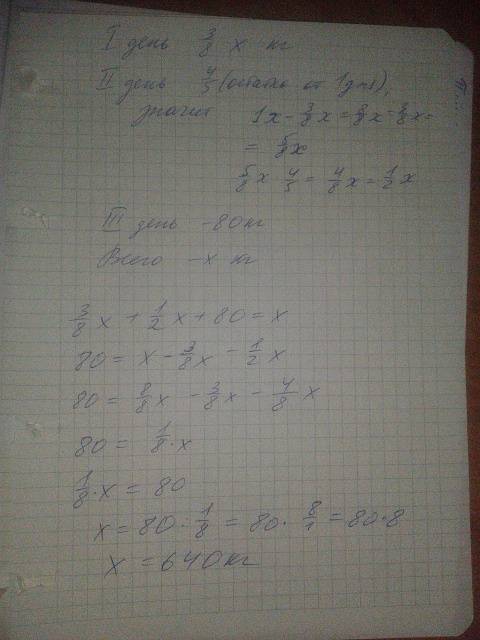 I день 3/8 x кг
II день 4/5 (остатка от 1 дня),
значит 1x - 3/8 x = 8/8 x - 3/8 x =
= 5/8 x
5/8 x · 4/5 = 4/8 x = 1/2 x
III день - 80 кг
Всего - x кг
3/8 x + 1/2 x + 80 = x
80 = x - 3/8 x - 1/2 x
80 = 8/8 x - 3/8 x - 4/8 x
80 = 1/8 · x
1/8 · x = 80
x = 80 : 1/8 = 80 · 8/1 = 80 · 8
x = 640 кг